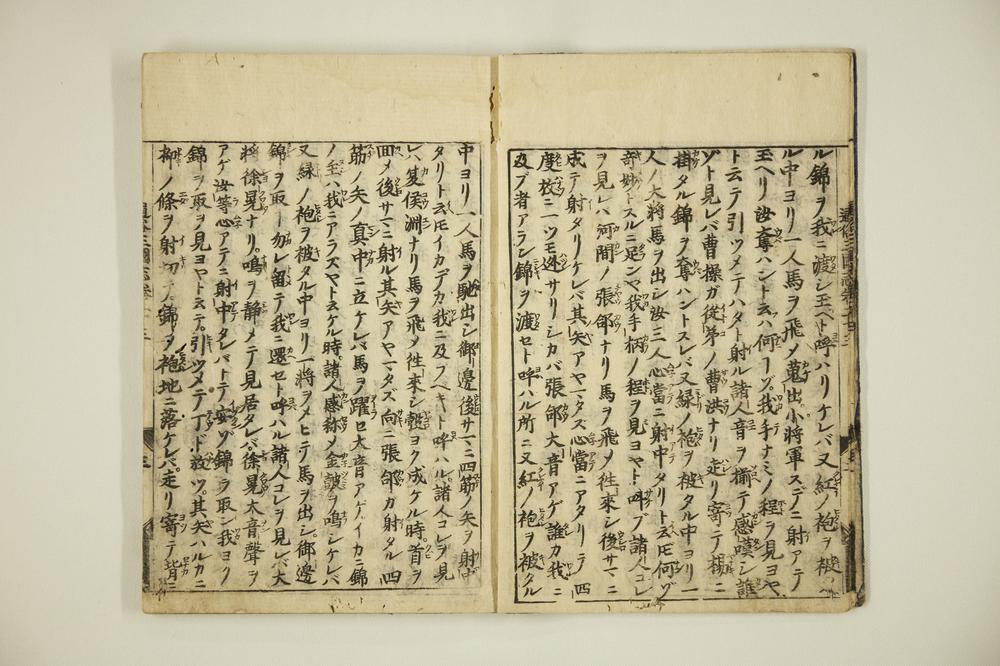 ル錦ヲ我ニ渡シ玉ヘト呼ハリケレバ又紅ノ袍ヲ被タ
ル中ヨリ一人馬ヲ飛メ蒐出小將軍スデニ射アテ
玉ヘリ汝奪ハントスハ何ーゾ我手ナミノ程ヲ見ヨヤ
ト云テ引ツメテハタト射ル諸人音ヲ揃テ感嘆シ誰
ゾト見レバ曹操ガ從弟ノ曹洪ナリ走リ寄テ楊ニ
掛タル錦ヲ奪ハントスレバ又緑ノ袍ヲ被タル中ヨリ一
人ノ大將馬ヲ出シ汝三人心當ニ射中タリト云𪜈何ゾ
奇妙トスルニ足ンヤ我手柄ノ程ヲ見ヨヤト呼ブ諸人コレ
ヲ見レバ河間ノ張郃ナリ馬ヲ飛メ徃來シ後サマニ
成テ射タリケレバ其矢アヤマタズ心當ニアタリテ四
度放ニ一ツモ迯サリシカバ張郃大音アゲ誰カ我ニ
及ブ者アラン錦ヲ渡セト呼ハル所ニ又紅ノ袍ヲ被タル
中ヨリ一人馬ヲ馳出シ御邊後サマニ四筋ノ矢ヲ射中
タリト云𪜈イカデカ我ニ及フベキト呼ハル諸人コレヲ見
レバ夏侯淵ナリ馬ヲ飛メ徃來シ彀ヨク成ケル時首ヲ
囬メ後サマニ射ル其矢アヤマタズ向ニ張郃カ射タル四
筋ノ矢ノ真中ニ立ケレバ馬ヲ躍セ大音アゲイカニ錦
ノ主ハ我ニアラズヤト云ケル時諸人感称メ金皷ヲ鳴シケレバ
又緑ノ袍ヲ被タル中ヨリ一將ヲメヒテ馬ヲ出シ御邊
錦ヲ取ー勿レ留テ我ニ還セト呼ハル諸人コレヲ見レバ大
將徐晃ナリ鳴ヲ静メテ見居タレバ徐晃大音聲ヲ
アゲ汝等心アテニ射中タレバトテ安ゾ錦ヲ取ン我ヨク
錦ヲ取ヲ見ヨヤトテ引ツメテ丁ド發ツ其矢ハルカニ
柳ノ條ヲ射切テ錦ノ袍地ニ落ケレバ走リ寄テ背ニ